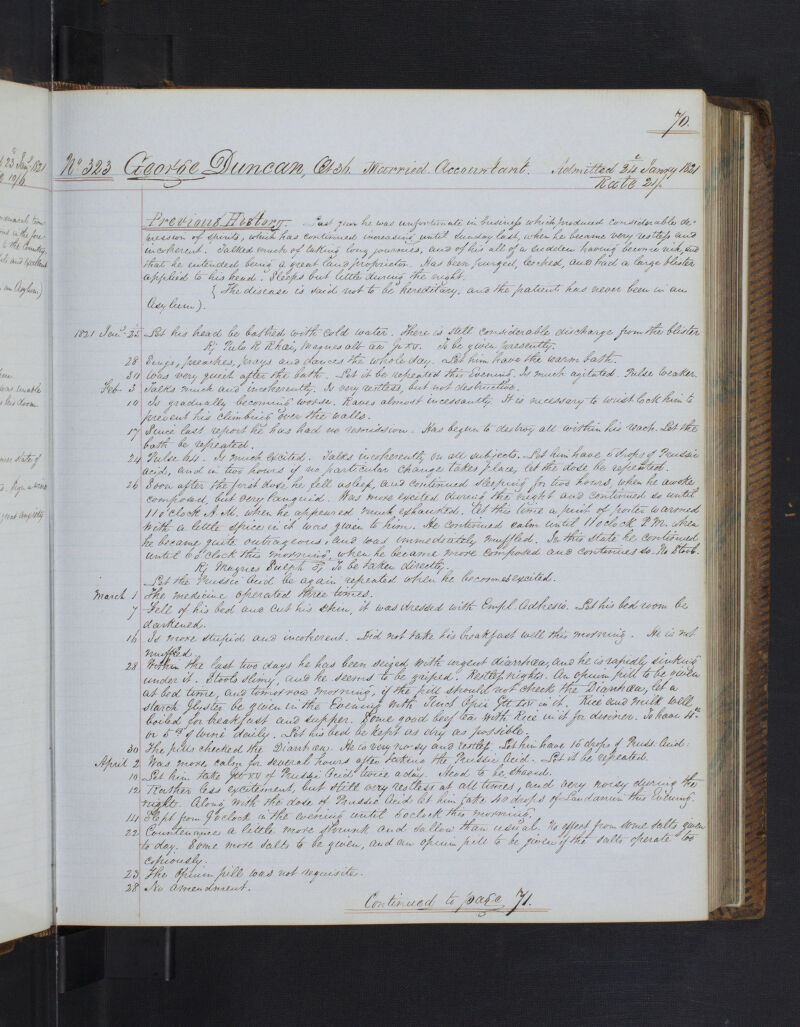 70.
No 323 George Duncan, Æt 36. Married. Accountant. Admitted 24 Janry 1821
Rate 21/.
Previous History. Last year he was unfortunate in business which produced considerable de-
pression of spirits, which has continued increasing until Sunday last, when he became very restless and
incoherent. Talked much of taking long journies, and of his all of a sudden having become rich, and
that he intended being a great land proprietor. Has been purged, leeched, and had a large blister
applied to his head. Sleeps but little during the night.
(The disease is said not to be hereditary, and the patient has never been in an
Asylum).
1821 Jany 25 Let his head be bathed with cold water. There is still considerable discharge from the blister
R. Pulv R. Rhai, Magnes alb aa gr xv. To be given presently.
28 Sings, preaches, prays and dances the whole day. Let him have the warm bath.
31 Was very quiet after the bath. Let it be repeated this Evening. Is much agitated. Pulse weaker.
Feb 3 Talks much and incoherently. Is very restless, but not destructive.
10 Is gradually becoming worse. Raves almost incessantly. It is necessary to wrist lock him to
prevent his climbing over the walls.
17 Since last report he has had no remission. Has begun to destroy all within his reach. Let the
bath be repeated.
24 Pulse Is much excited. Talks incoherently on all subjects. Let him have 6 drops of Prussic
acid, and in two hours if no particular change takes place, let the dose be repeated.
26 Soon after the first dose he fell asleep, and continued sleeping for two hours, when he awoke
composed, but very languid. Was more excited during the night and continued so until
11 o'clock A.M. when he appeared much exhausted. At this time a pint of porter warmed
with a little spice in it was given to him. He continued calm until 11 o'clock P.M. when
he became quite outrageous, and was immediately muffled. In this state he continued
until 6 o'clock this morning, when he became more composed and continues so. No Stool.
R. Magnes Sulph ℥j To be taken directly.
Let the Prussic Acid be again repeated when he becomes excited.
March 1 The medicine operated three times.
7 Fell of his bed and cut his shin, it was dressed with Empl. Adhesiv. Let his bed room be
darkened.
16 Is more stupid and incoherent. Did not take his breakfast well this morning. He is not
muffled.
28 Within the last two days he has been seized with urgent diarrhœa, and he is rapidly sinking
under it. Stools slimy, and he seems to be griped. Restless nights. An opium pill to be given
at bed time, and tomorrow morning, if the pill should not check the Diarrhœa, let a
starch glyster be given in the Evening with Tinct Opii in it. Rice and milk well
boiled for breakfast and supper. Some good beef tea with Rice in it for dinner. To have 4
or 5 oz of wine daily. Let his bed be kept as dry as possible.
30 The pills checked the Diarrhœa. He is very noisy and restless. Let him have 10 drops of Pruss. Acid.
April 2 Was more calm for several hours after taking the Prussic Acid. Let it be repeated.
10 Let him take gtt xv of Prussic Acid twice a day. Head to be shaved.
12 Rather less excitement, but still very restless at all times, and very noisy during the
night. Along with the dose of Prussic Acid let him take 40 drops of Laudanum this Evening.
14 Slept from 9 o'clock in the evening until 6 o'clock this morning.
22 Countenance a little more shrunk and sallow than usual. No effect from some salts given
to day. Some more salts to be given, and an opium pill to be given if the salts operate too
copiously.
23 The opium pill was not requisite.
28 No amendment.
Continued to page 71.